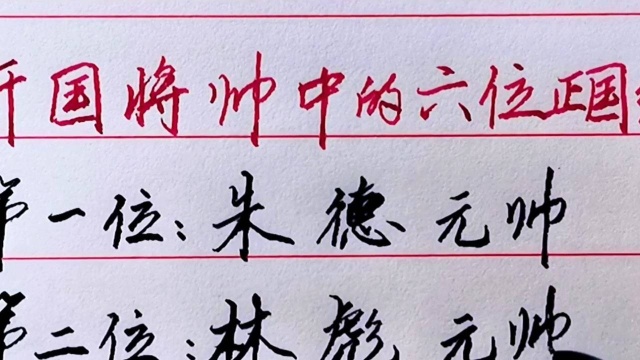 开国将帅中的六位正国级
第一位：朱德元帅
第二位：林彪元帅